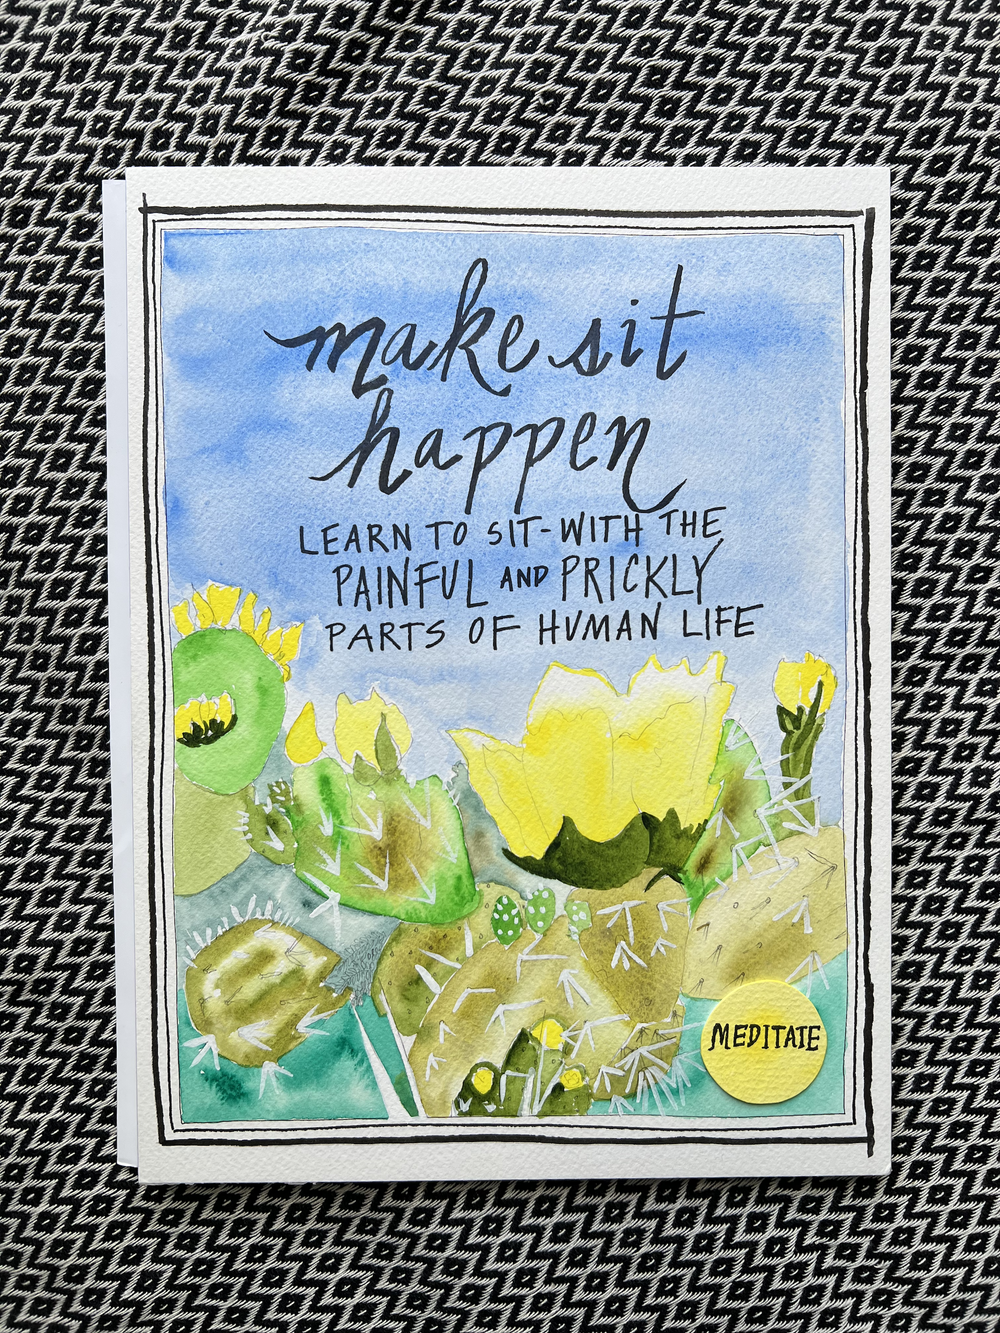 make sit
happen
LEARN TO SIT-WITH THE
PAINFUL AND PRICKLY
PARTS OF HUMAN LIFE
MEDITATE